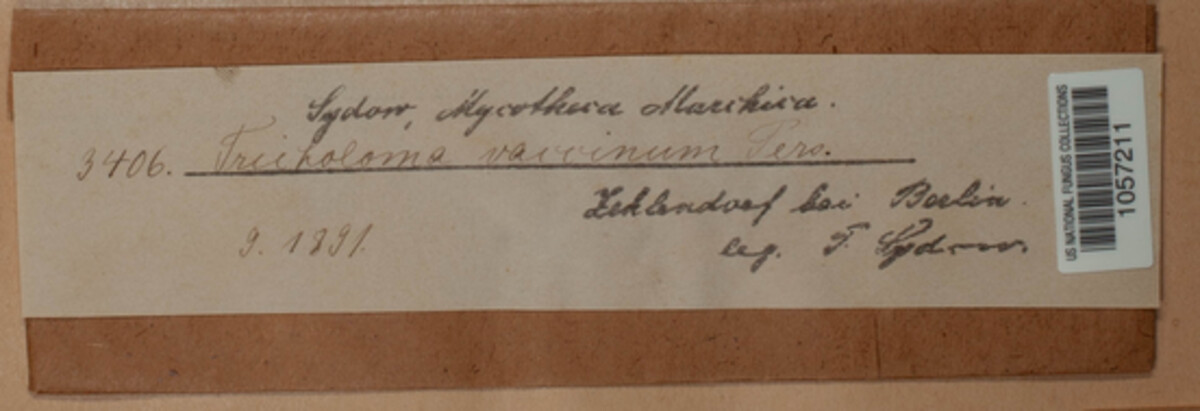 Sydow, Mycotheca Marchica.
3406. Tricholoma vaccinum Pers.
Zehlendorf bei Berlin.
9. 1891.
leg. P. Sydow.
US NATIONAL FUNGUS COLLECTIONS
1057211